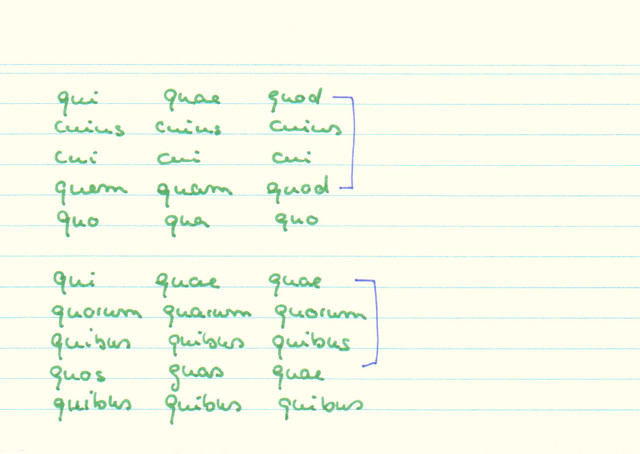 qui quae quod
cuius cuius cuius
cui cui cui
quem quam quod
quo qua quo
qui quae quae
quorum quarum quorum
quibus quibus quibus
quos quas quae
quibus quibus quibus